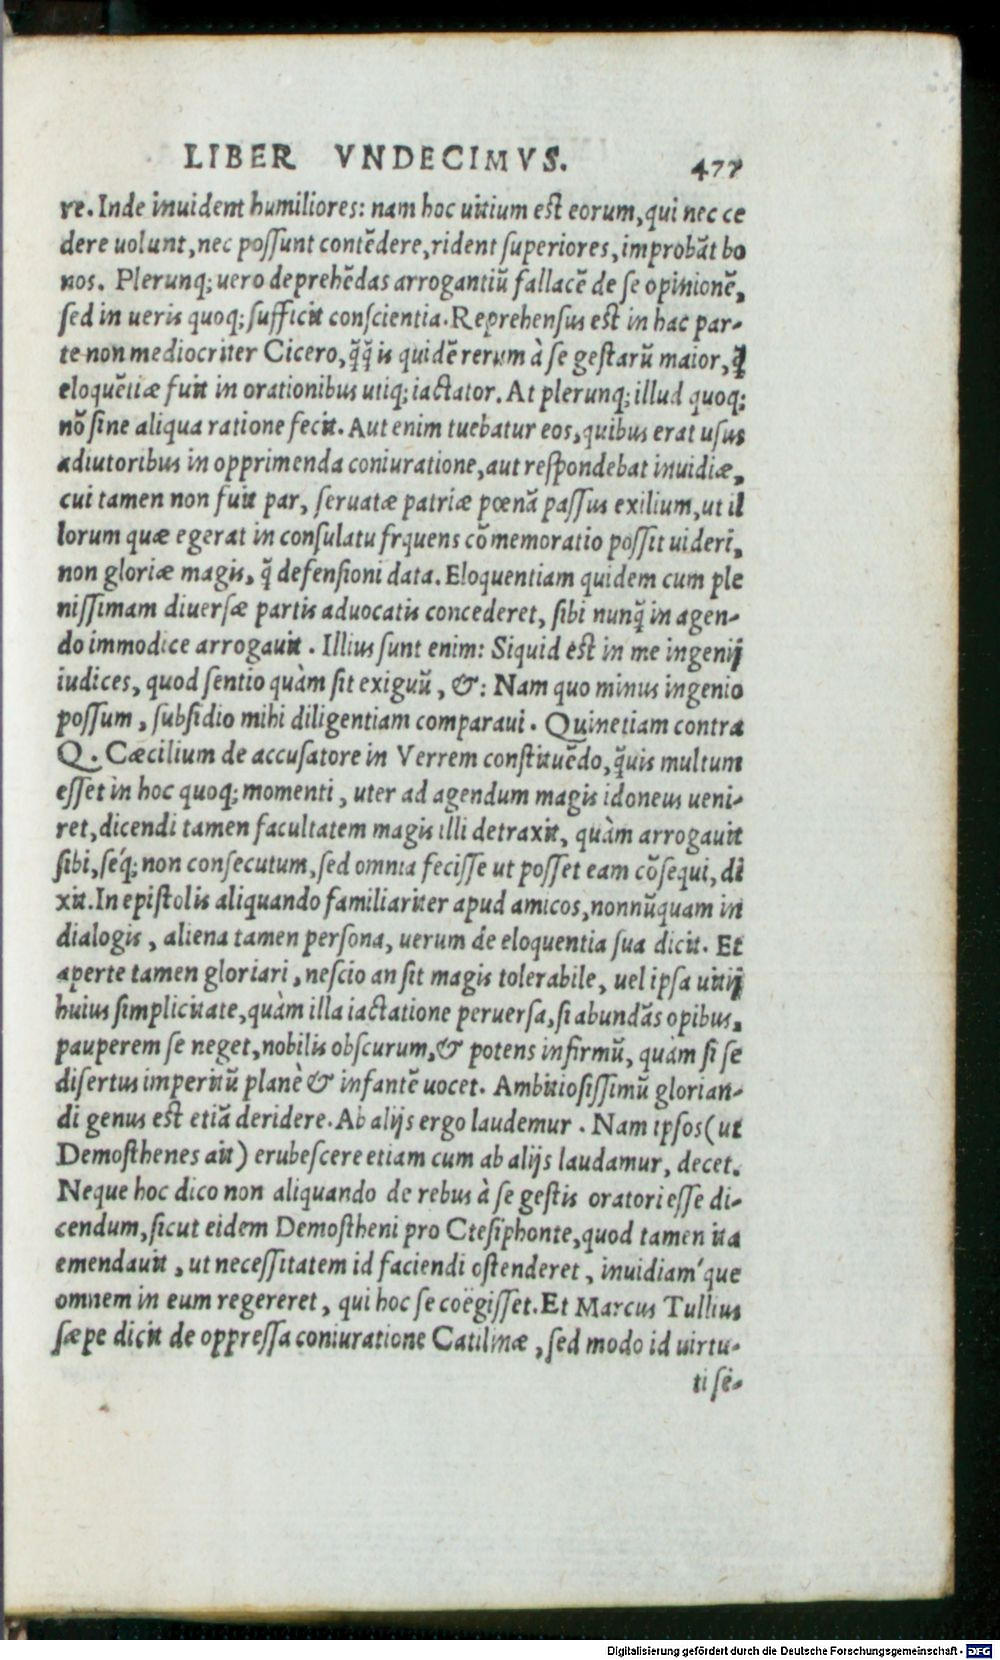 LIBER VNDECIMVS. 477
re. Inde inuident humiliores: nam hoc uitium est eorum, qui nec ce
dere uolunt, nec possunt contēdere, rident superiores, improbāt bo
nos. Plerunq; uero deprehēdas arrogantiū fallacē de se opinionē,
sed in ueris quoq; sufficit conscientia. Reprehensus est in hac par-
te non mediocriter Cicero, q̃q̃ is quidē rerum à se gestarū maior, q̃
eloquētiæ fuit in orationibus utiq; iactator. At plerunq; illud quoq;
nō sine aliqua ratione fecit. Aut enim tuebatur eos, quibus erat usus
adiutoribus in opprimenda coniuratione, aut respondebat inuidiæ,
cui tamen non fuit par, seruatæ patriæ pœnā passus exilium, ut il
lorum quæ egerat in consulatu frquens cōmemoratio possit uideri,
non gloriæ magis, q̃ defensioni data. Eloquentiam quidem cum ple
nissimam diuersæ partis aduocatis concederet, sibi nunq̃ in agen-
do immodice arrogauit. Illius sunt enim: Siquid est in me ingenij
iudices, quod sentio quàm sit exiguū, &: Nam quo minus ingenio
possum, subsidio mihi diligentiam comparaui. Quinetiam contra
Q. Cæcilium de accusatore in Verrem constituēdo, q̃uis multum
esset in hoc quoq; momenti, uter ad agendum magis idoneus ueni-
ret, dicendi tamen facultatem magis illi detraxit, quàm arrogauit
sibi, séq; non consecutum, sed omnia fecisse ut posset eam cōsequi, di
xit. In epistolis aliquando familiariter apud amicos, nonnūquam in
dialogis, aliena tamen persona, uerum de eloquentia sua dicit. Et
aperte tamen gloriari, nescio an sit magis tolerabile, uel ipsa uitij
huius simplicitate, quàm illa iactatione peruersa, si abundās opibus,
pauperem se neget, nobilis obscurum, & potens infirmū, quàm si se
disertus imperitū planè & infantē uocet. Ambitiosissimū glorian-
di genus est etiā deridere. Ab alijs ergo laudemur. Nam ipsos (ut
Demosthenes ait) erubescere etiam cum ab alijs laudamur, decet.
Neque hoc dico non aliquando de rebus à se gestis oratori esse di-
cendum, sicut eidem Demostheni pro Ctesiphonte, quod tamen ita
emendauit, ut necessitatem id faciendi ostenderet, inuidiam´que
omnem in eum regereret, qui hoc se coëgisset. Et Marcus Tullius
sæpe dicit de oppressa coniuratione Catilinæ, sed modo id uirtu-
ti se-
Digitalisierung gefördert durch die Deutsche Forschungsgemeinschaft - DFG